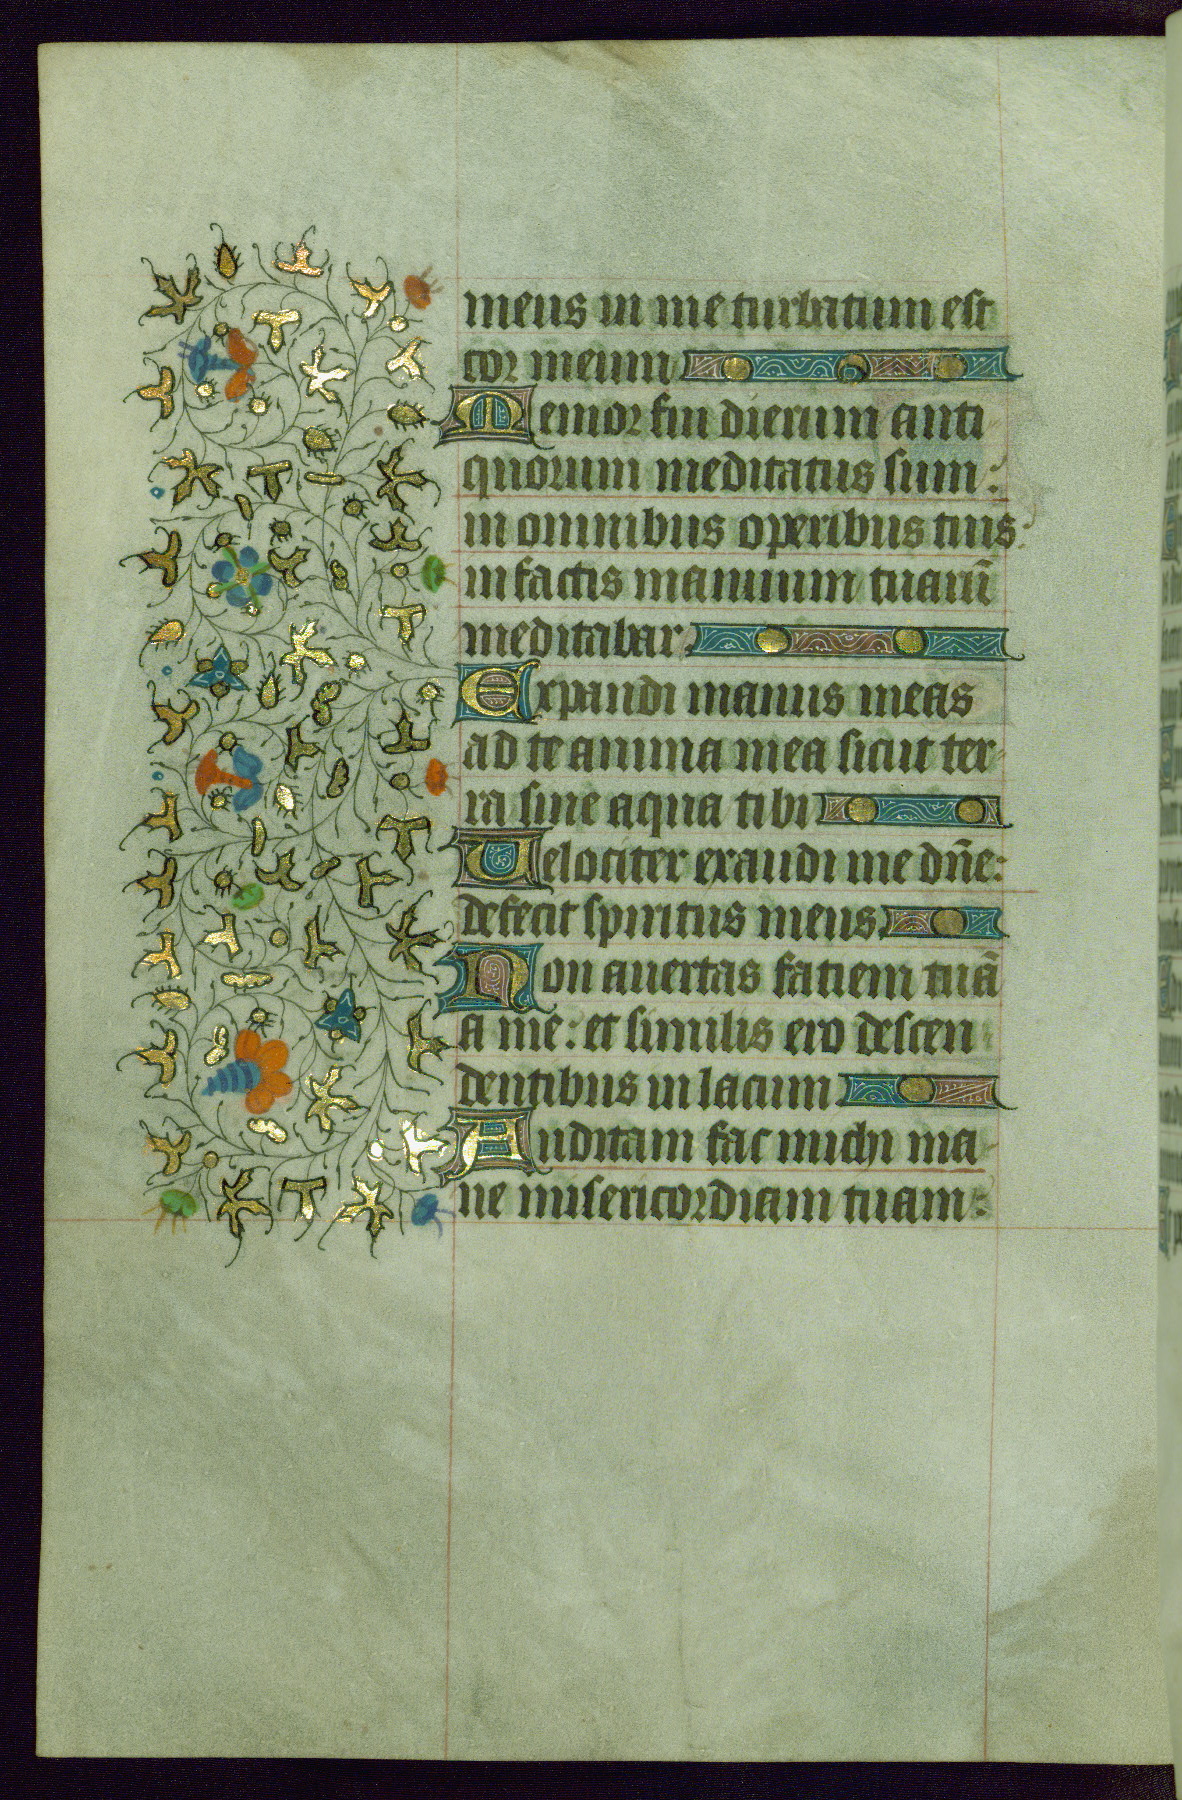 meus in me turbatum est
cor meum
Memor fui dierum anti
quorum meditatus sum:
in omnibus operibus tuis:
in factis manuum tuarū
meditabar
Expandi manus meas
ad te anima mea sicut ter-
ra sine aqua tibi
Uelociter exaudi me dn̄e:
defecit spiritus meus
Non auertas fatiem tuā
a me: et similis ero descen
dentibus in lacum
Auditam fac michi ma
ne misericordiam tuam: